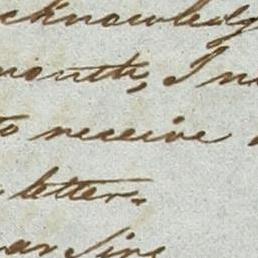 cknowledg
month, I
to receive
letter.
ear Sirs